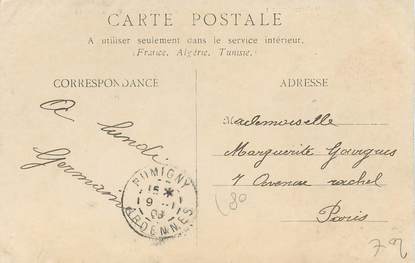 CARTE POSTALE
A utiliser seulement dans le service intérieur.
(France, Algérie, Tunisie.)
CORRESPONDANCE
A lundi.
Germain
ADRESSE
Mademoiselle
Marguerite Gourgues
7 Avenue rachel
Paris
RUMIGNY
15 *
9
03
ARDENNES
80